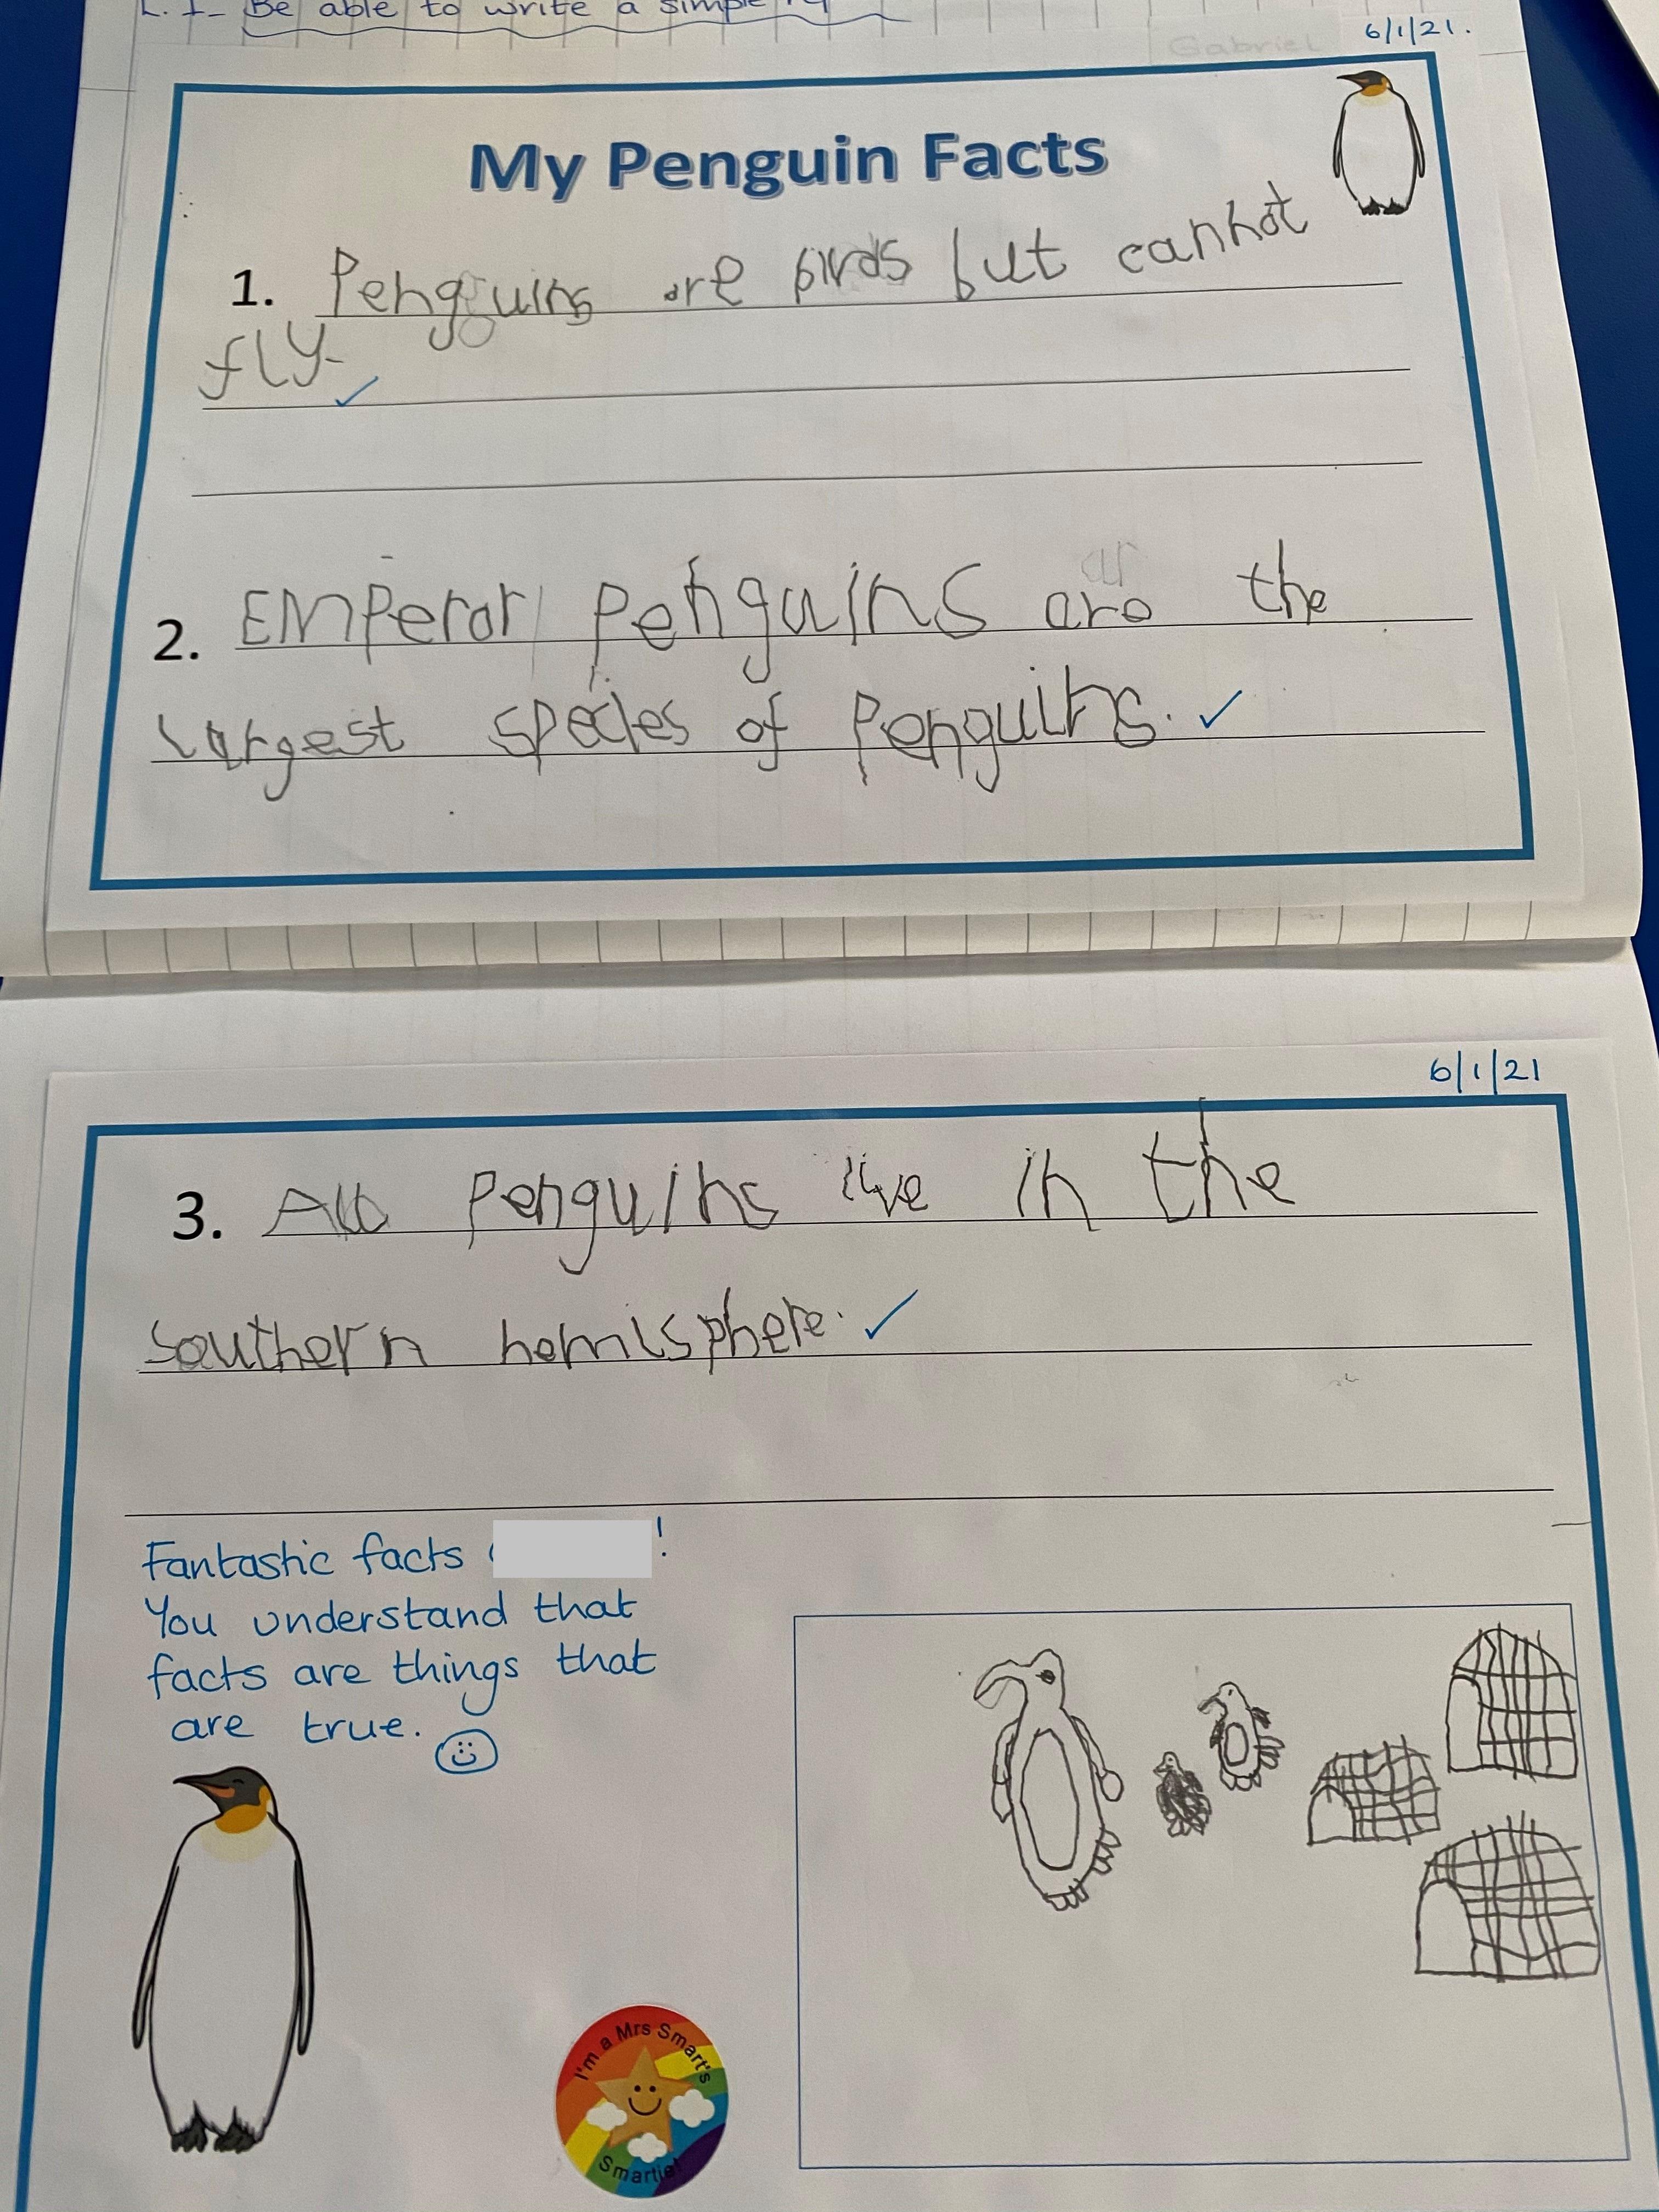 L. I - Be able to write a simple
Gabriel
6/1/21.
My Penguin Facts
1. Penguins are birds but cannot
fly.
2. Emperor Penguins are the
largest species of Penguins.
6/1/21
3. All Penguins live in the
southern hemisphere.
Fantastic facts !
You understand that
facts are things that
are true.
I'm a Mrs Smart's
Smartie!